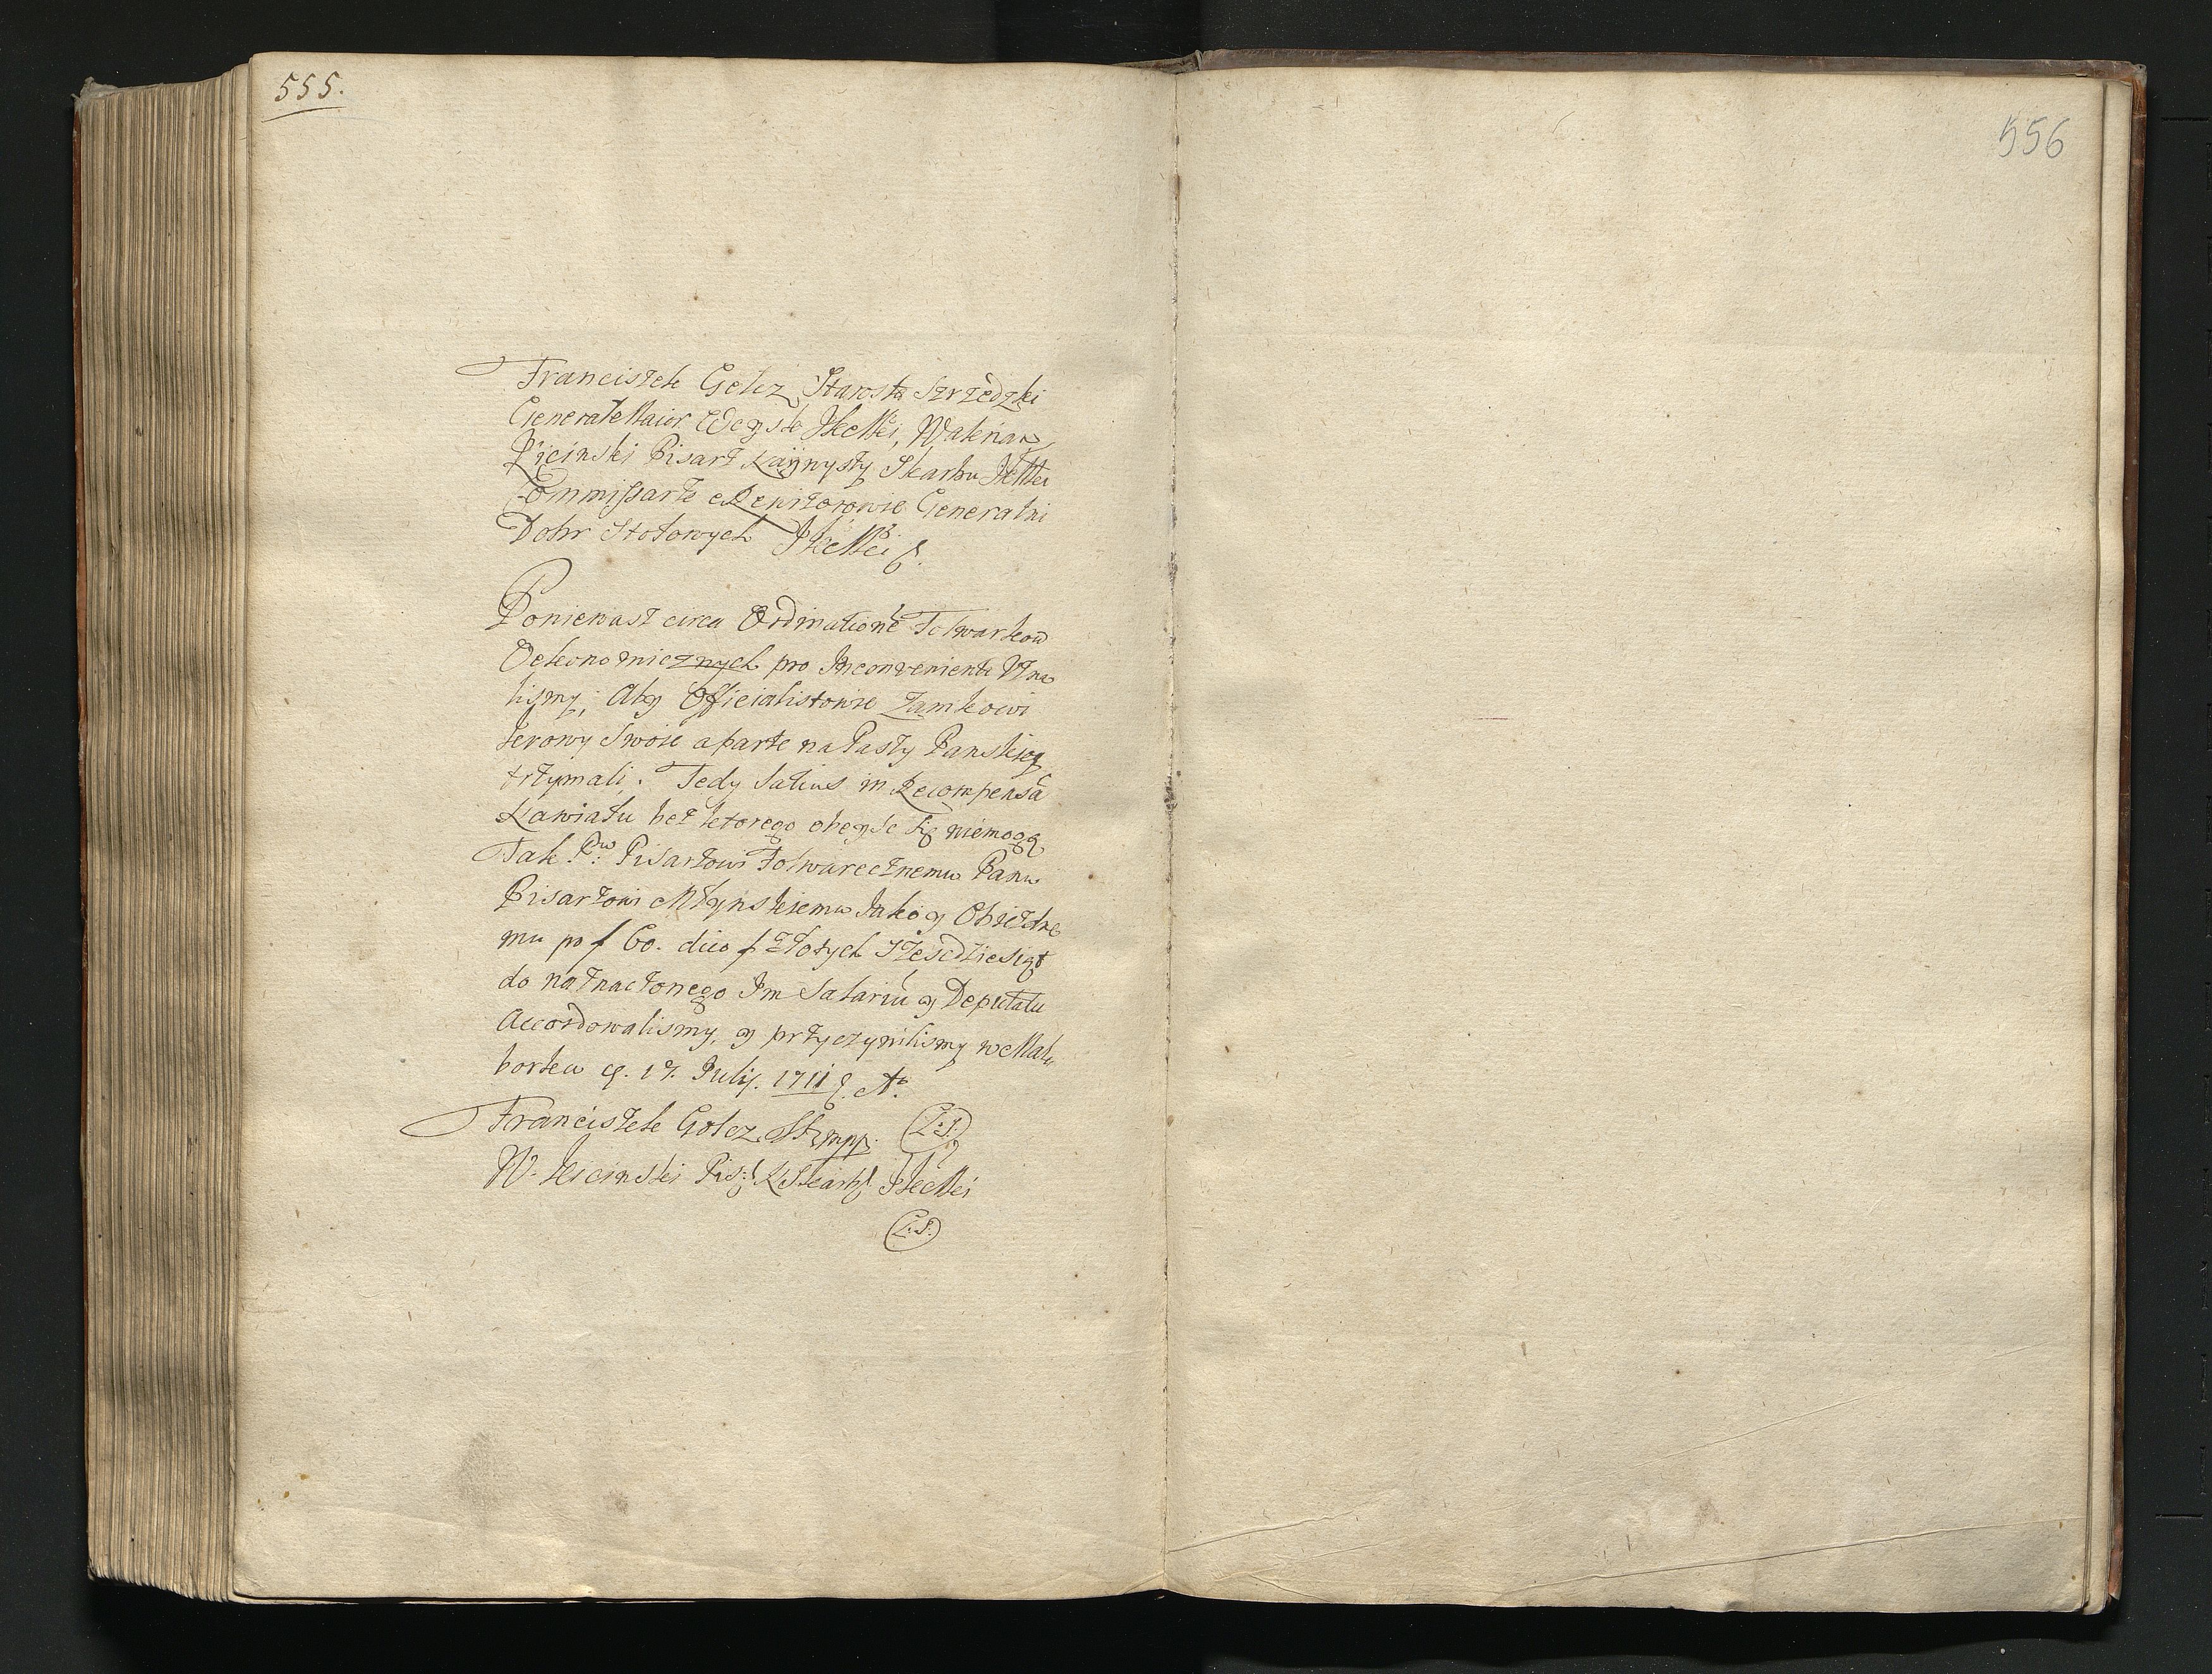 555.
556
Franciszek Golcz Starosta Szrzedzki
Generał Maior Woyska JKMci, Walerian
Kicinski Pisarz Kaynysty Skarbu JKMci
Commissarze Rewizorowie Generalni
Dobr Stołowych JKMci
Ponieważ circa Ordinationē Folwarkow
Oekonomicznych pro Inconvenienti Uzna
lismy; Aby Officialistowie Zamkowi
krowy Swoie aparte na Paszy Panskiey
trzymali, Tedy Satius in Recompensā
Nawiału bez ktorego obeyść się niemogą
Tak Pw. Pisarzowi Folwarcznemu Panu
Pisarzowi Młynskiemu Jako y Obiezdne
mu po f 60. dico f złotych sześcdziesiąt
do naznaczonego Im Salariū y Deputatu
Accordowalismy, y przyczynilismy w Mal
borku d. 17. Julij. 1711
Franciszek Golcz St mpp. (L.S.)
W. Kicinski Pis: Skarb: JKMci
(L.S.)